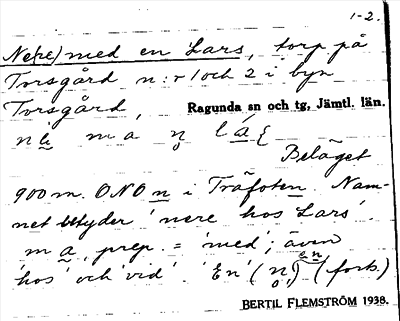 1-2.
Ne(re) med en Lars, torp på
Torsgård n:r 1 och 2 i byn
Torsgård, Ragunda sn och tg, Jämtl. län.
Beläget
900 m. ONO n i Träfoten. Nam-
net betyder 'nere hos Lars'.
ma, prep. = 'med'; även
'hos' och 'vid'. 'En' (forts.)
BERTIL FLEMSTRÖM 1938.